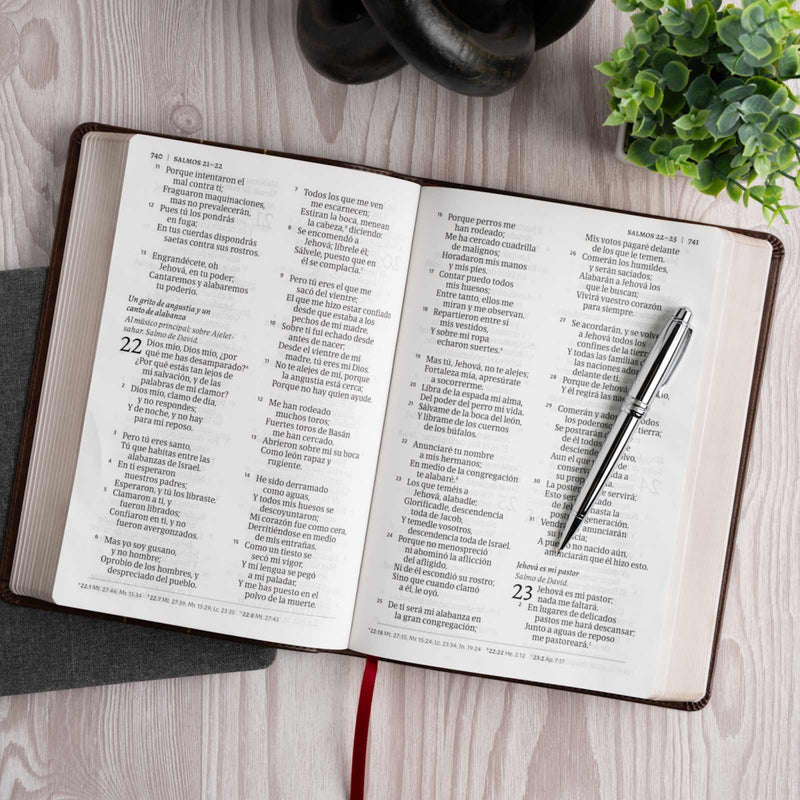 740 | SALMOS 21–22
11 Porque intentaron el
mal contra ti;
Fraguaron maquinaciones,
mas no prevalecerán,
12 Pues tú los pondrás
en fuga;
En tus cuerdas dispondrás
saetas contra sus rostros.
13 Engrandécete, oh
Jehová, en tu poder;
Cantaremos y alabaremos
tu poderío.
Un grito de angustia y un
canto de alabanza
Al músico principal; sobre Ajelet-
sahar. Salmo de David.
22 Dios mío, Dios mío, ¿por
qué me has desamparado?a
¿Por qué estás tan lejos de
mi salvación, y de las
palabras de mi clamor?
2 Dios mío, clamo de día,
y no respondes;
Y de noche, y no hay
para mí reposo.
3 Pero tú eres santo,
Tú que habitas entre las
alabanzas de Israel.
4 En ti esperaron
nuestros padres;
Esperaron, y tú los libraste.
5 Clamaron a ti, y
fueron librados;
Confiaron en ti, y no
fueron avergonzados.
6 Mas yo soy gusano,
y no hombre;
Oprobio de los hombres, y
despreciado del pueblo.
7 Todos los que me ven
me escarnecen;
Estiran la boca, menean
la cabeza,b diciendo:
8 Se encomendó a
Jehová; líbrele él;
Sálvele, puesto que en
él se complacía.c
9 Pero tú eres el que me
sacó del vientre;
El que me hizo estar confiado
desde que estaba a los
pechos de mi madre.
10 Sobre ti fui echado desde
antes de nacer;
Desde el vientre de mi
madre, tú eres mi Dios.
11 No te alejes de mí, porque
la angustia está cerca;
Porque no hay quien ayude.
12 Me han rodeado
muchos toros;
Fuertes toros de Basán
me han cercado.
13 Abrieron sobre mí su boca
Como león rapaz y
rugiente.
14 He sido derramado
como aguas,
Y todos mis huesos se
descoyuntaron;
Mi corazón fue como cera,
Derritiéndose en medio
de mis entrañas.
15 Como un tiesto se
secó mi vigor,
Y mi lengua se pegó
a mi paladar,
Y me has puesto en el
polvo de la muerte.
a22:1 Mt. 27:46; Mr. 15:34 b22:7 Mt. 27:39; Mr. 15:29; Lc. 23:35 c22:8 Mt. 27:43
SALMOS 22–23 | 741
16 Porque perros me
han rodeado;
Me ha cercado cuadrilla
de malignos;
Horadaron mis manos
y mis pies.
17 Contar puedo todos
mis huesos;
Entre tanto, ellos me
miran y me observan.
18 Repartieron entre sí
mis vestidos,
Y sobre mi ropa
echaron suertes.a
19 Mas tú, Jehová, no te alejes;
Fortaleza mía, apresúrate
a socorrerme.
20 Libra de la espada mi alma,
Del poder del perro mi vida.
21 Sálvame de la boca del león,
Y líbrame de los cuernos
de los búfalos.
22 Anunciaré tu nombre
a mis hermanos;
En medio de la congregación
te alabaré.b
23 Los que teméis a
Jehová, alabadle;
Glorificadle, descendencia
toda de Jacob,
Y temedle vosotros,
descendencia toda de Israel.
24 Porque no menospreció
ni abominó la aflicción
del afligido,
Ni de él escondió su rostro;
Sino que cuando clamó
a él, le oyó.
25 De ti será mi alabanza en
la gran congregación;
Mis votos pagaré delante
de los que le temen.
26 Comerán los humildes,
y serán saciados;
Alabarán a Jehová los
que le buscan;
Vivirá vuestro corazón
para siempre.
27 Se acordarán, y se volve
a Jehová todos los
confines de la tierra
Y todas las familias
las naciones ado
delante de ti.
28 Porque de Jehová
Y él regirá las na
29 Comerán y ador
los poderosos tierra;
Se postrarán
de él todos
desciende
Aun el que
conserva
propia
30 La poste servirá:
Esto será
hasta la
postr generación.
31 Vendrá anunciarán
su
A pue no nacido aún,
anunciarán que él hizo esto.
Jehová es mi pastor
Salmo de David.
23 Jehová es mi pastor;
nada me faltará.
2 En lugares de delicados
pastos me hará descansar;
Junto a aguas de reposo
me pastoreará.c
a22:18 Mt. 27:35; Mr. 15:24; Lc. 23:34; Jn. 19:24 b22:22 He. 2:12 c23:2 Ap. 7:17